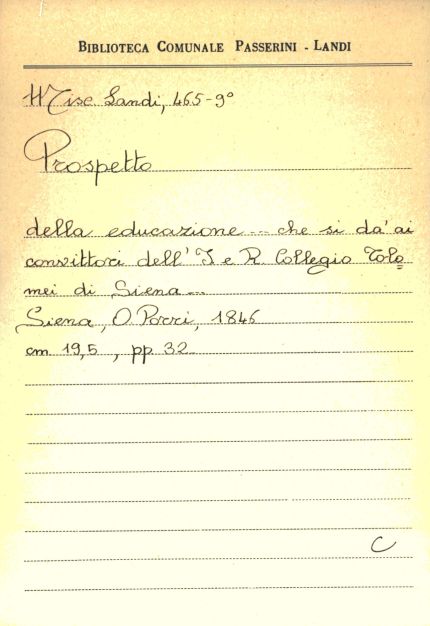 BIBLIOTECA COMUNALE PASSERINI - LANDI
Misc. Landi, 465-9°
Prospetto
della educazione ... che si da' ai
convittori dell' I e R. Collegio Tolo=
mei di Siena...
Siena, O. Porri, 1846
cm 19,5, pp 32
C